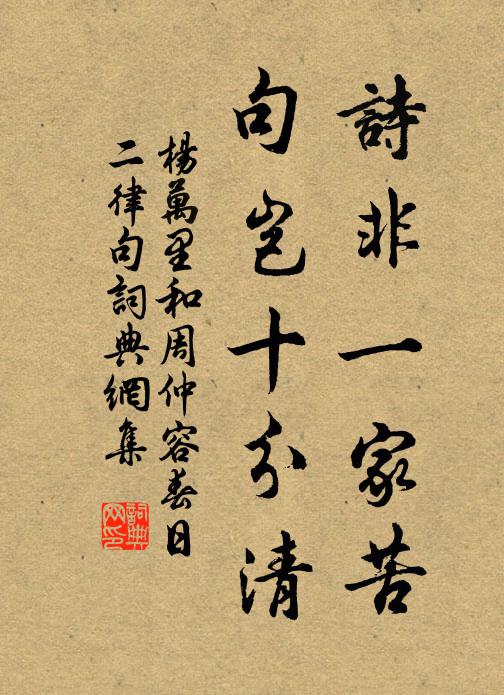 詩非一家苦
句豈十分清
楊萬里和周仲容春日
二律句詞典網集
詞典
网印